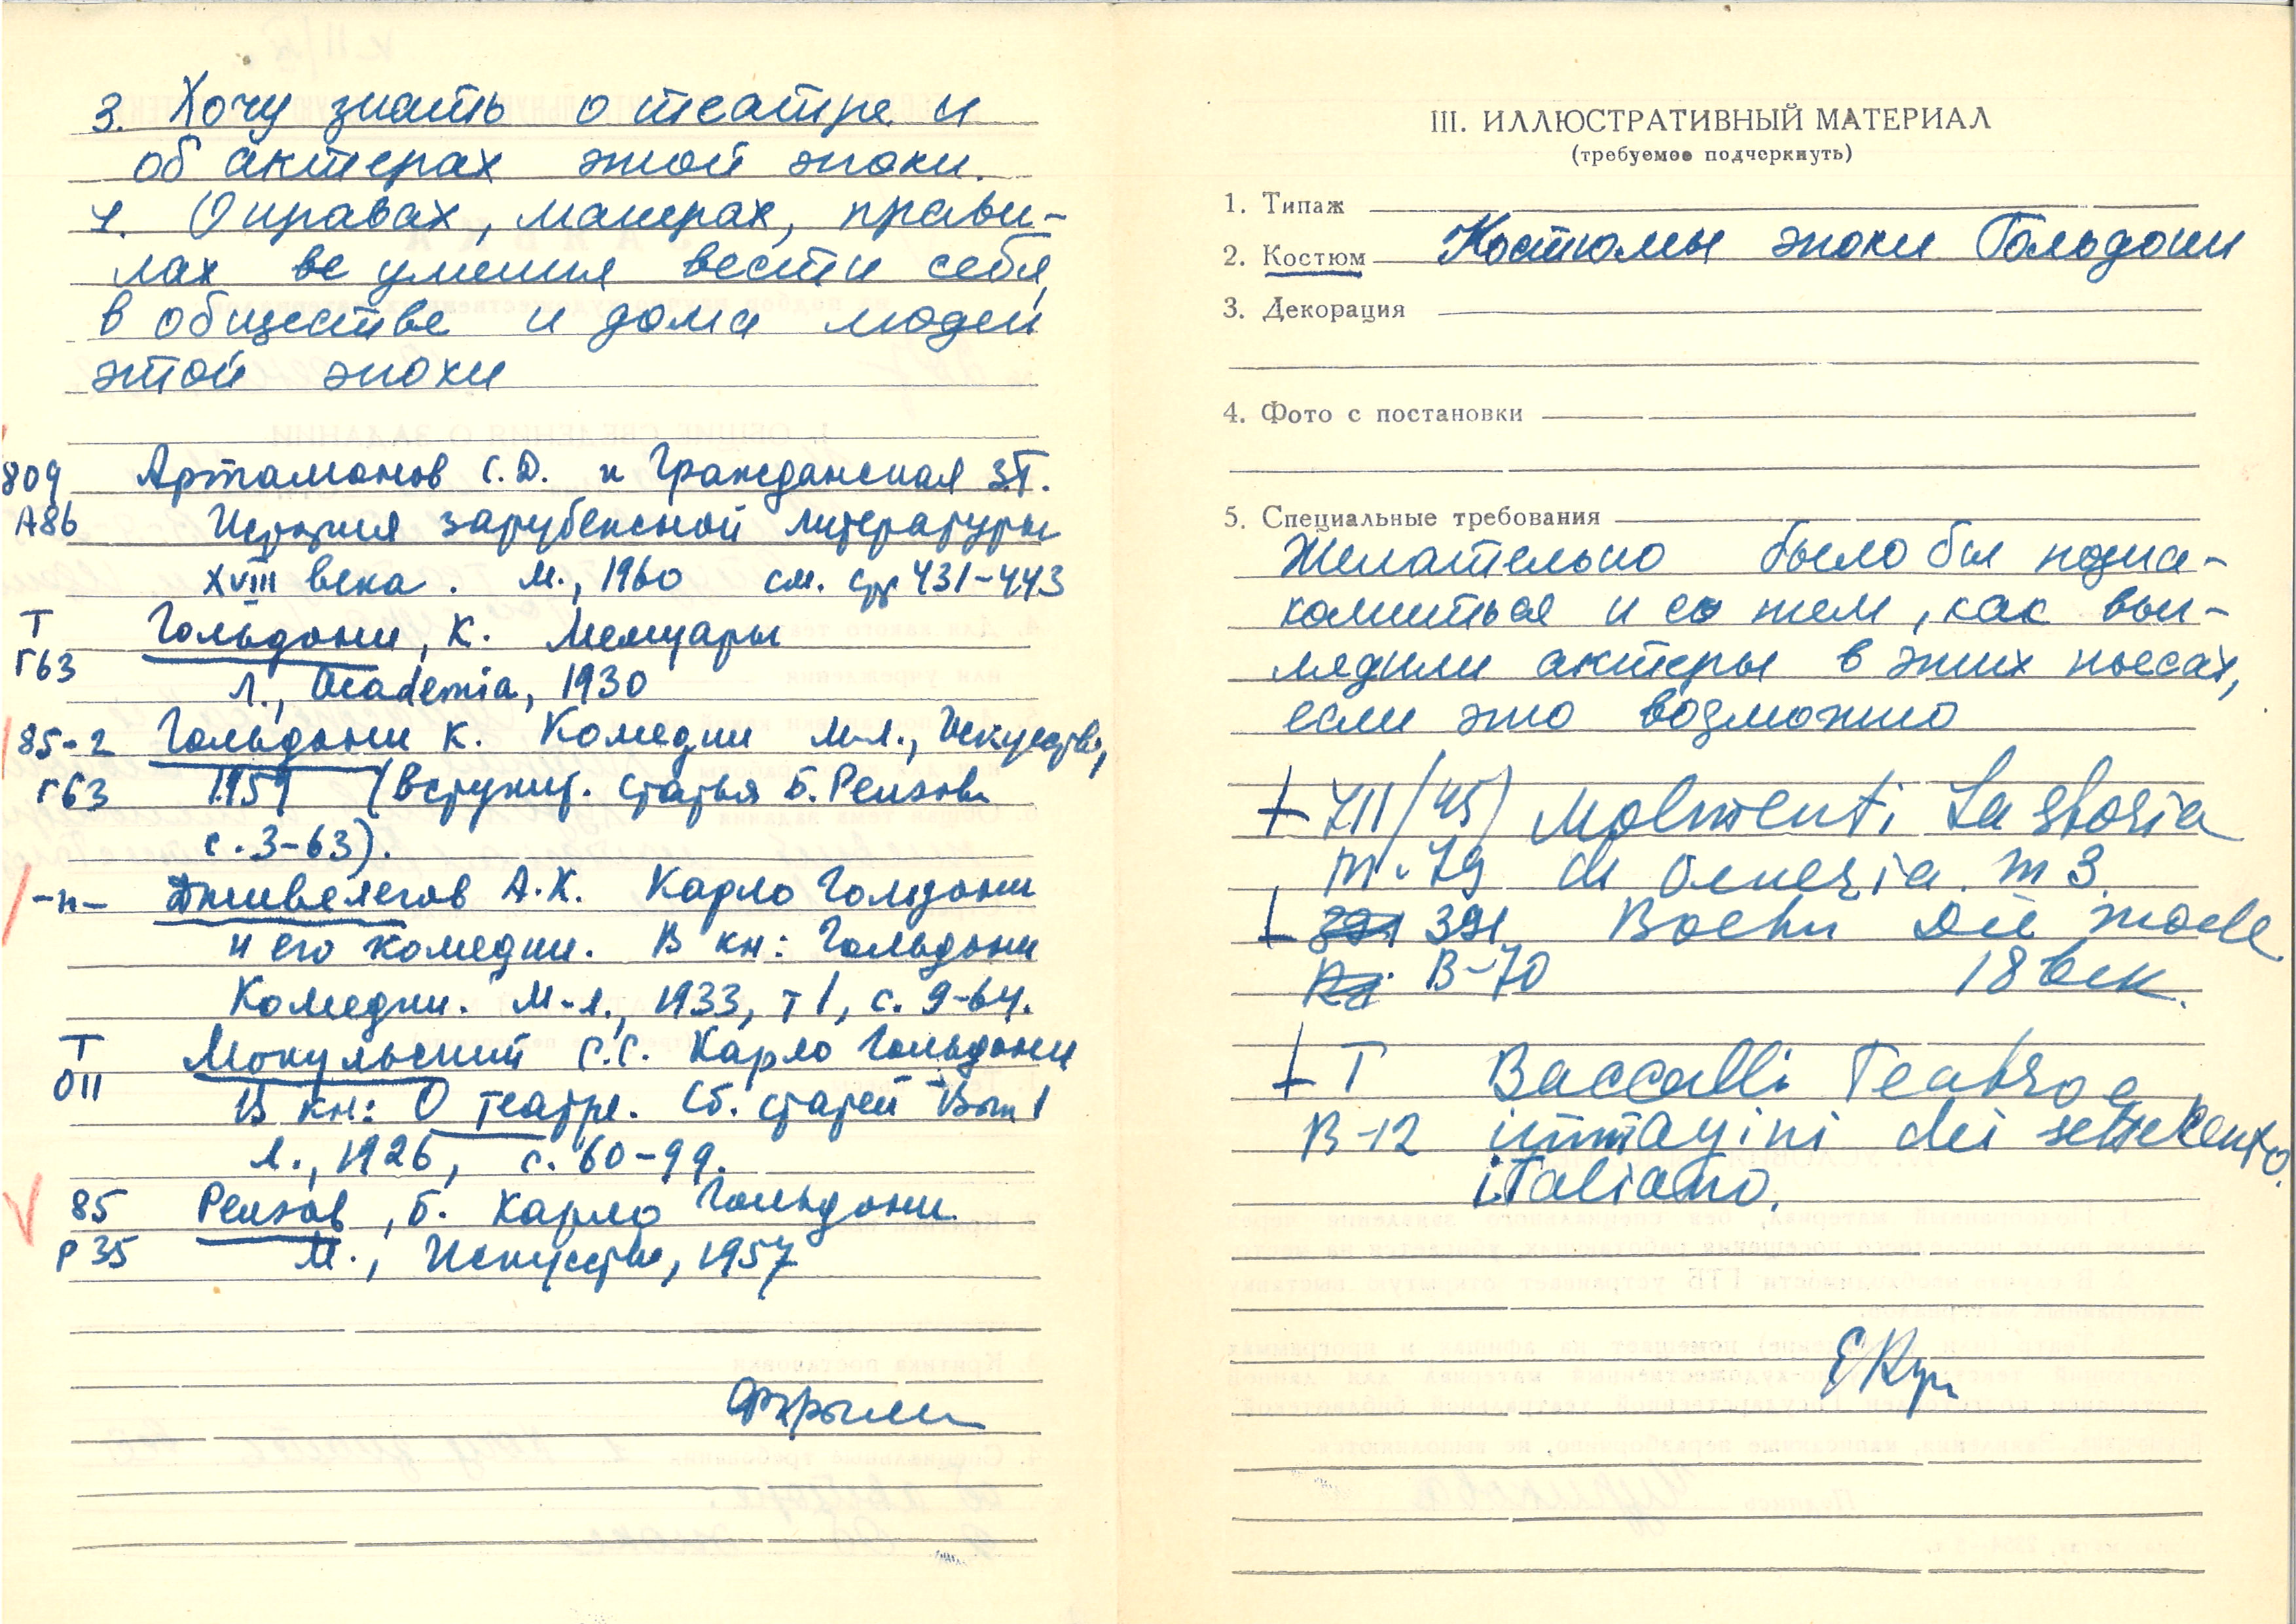 3. Хочу знать о театре и
об актерах этой эпохи.
4. О нравах, манерах, прави-
лах ве умения вести себя
в обществе и дома людей
этой эпохи
809 Артамонов С.Д. и Гражданская З.Т.
А86 История зарубежной литературы
XVIII века. М., 1960 см. стр 431-443
Т Гольдони, К. Мемуары
Г63 Л., Academia, 1930
85-2 Гольдони К. Комедии М-Л., Искусство,
Г63 1959 (Вступит. статья Б. Реизова
с. 3-63).
-"- Дживелегов А.К. Карло Гольдони
и его комедии. В кн: Гольдони
Комедии. М-Л., 1933, т 1, с. 9-64.
Т Мокульский С.С. Карло Гольдони
О11 В кн: О театре. Сб. статей Вып 1
Л., 1926, с. 60-99.
85 Реизов, Б. Карло Гольдони.
Р35 М., Искусство, 1957
III. ИЛЛЮСТРАТИВНЫЙ МАТЕРИАЛ
(требуемое подчеркнуть)
1. Типаж
2. Костюм Костюмы эпохи Гольдони
3. Декорация
4. Фото с постановки
5. Специальные требования
Желательно было бы позна-
комиться и со тем, как выг-
лядили актеры в этих пьесах,
если это возможно
+ 711/45) Molmenti La storia
m-79 di Venezia. т 3.
+ 391 Boehn Die mode
B-70 18 век.
+ Т Baccalli Teatro e
B-12 immagini dei settecento
italiano.